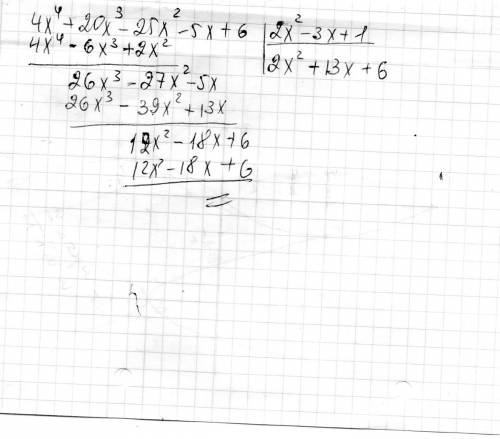 4x⁴ + 20x³ - 25x² - 5x + 6 | 2x² - 3x + 1
4x⁴ - 6x³ + 2x² | 2x² + 13x + 6
26x³ - 27x² - 5x
26x³ - 39x² + 13x
12x² - 18x + 6
12x² - 18x + 6
=